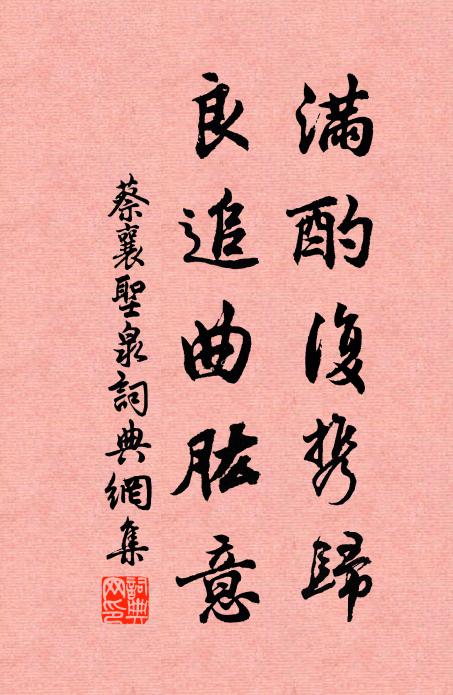 滿酌復携歸
良追曲肱意
蔡襄聖泉詞典網集
詞典網印